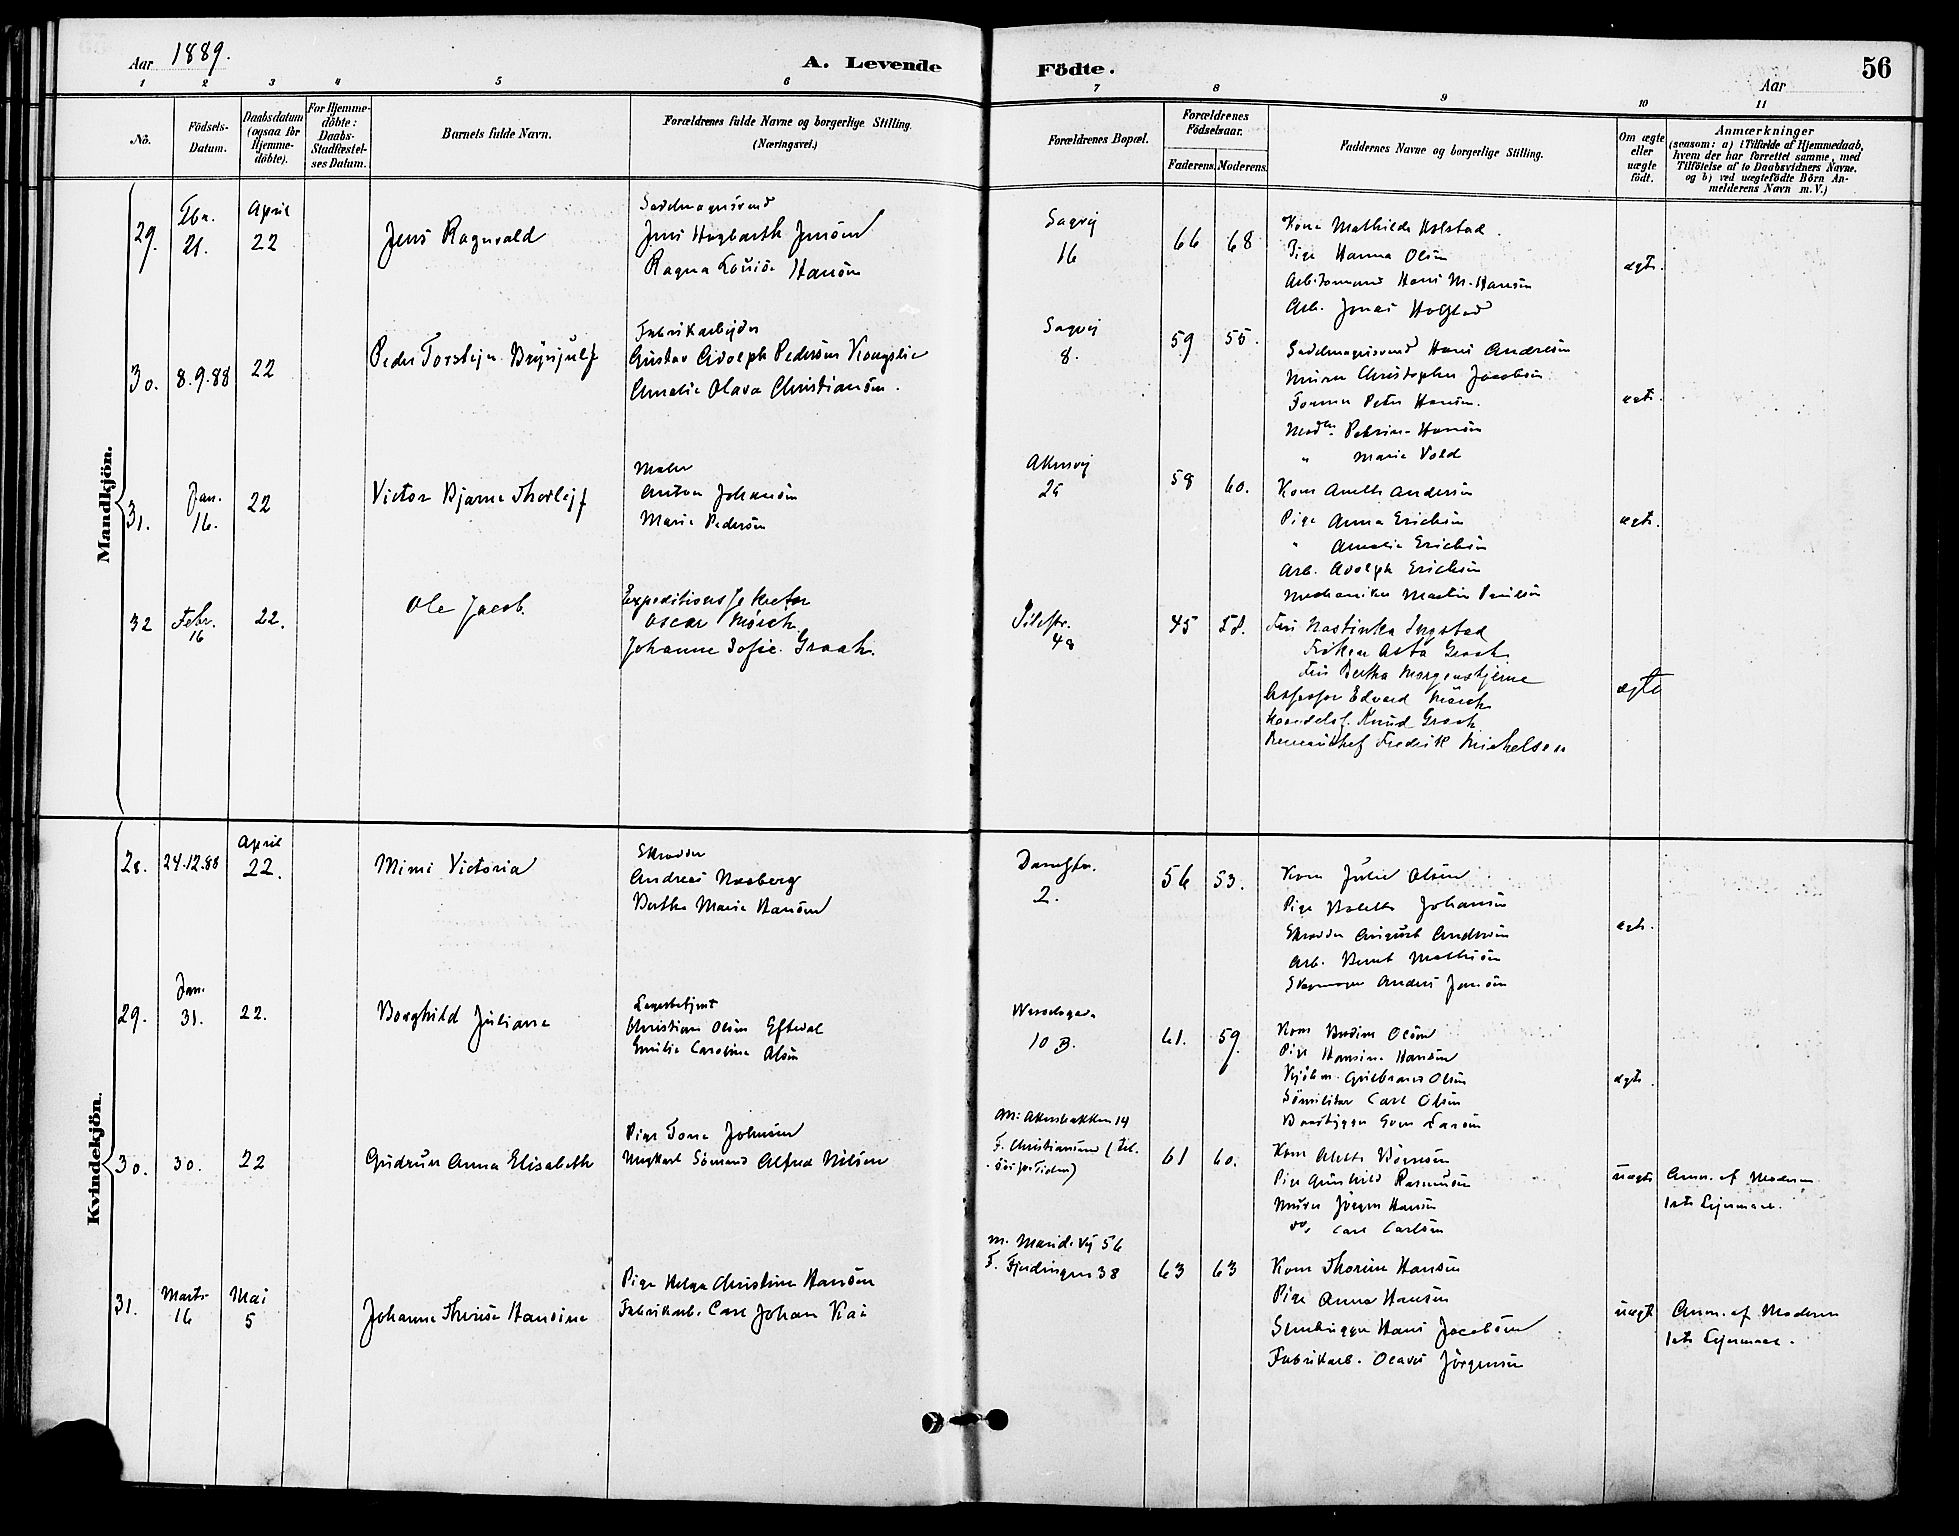 Aar 1889.
A. Levende Födte.
Aar
56
1 2 3 4 5 6 7 8 9 10 11
No.
Födsels-Datum.
Daabsdatum (ogsaa for Hjemme-döbte).
For Hjemme-döbte: Daabs-Stadfæstel-ses Datum.
Barnets fulde Navn.
Forældrenes fulde Navne og borgerlige Stilling.
(Næringsvei.)
Forældrenes Bopæl.
Forældrenes Födselsaar.
Faderens. Moderens.
Faddernes Navne og borgerlige Stilling.
Om ægte eller uægte födt.
Anmærkninger
(saasom: a) i Tilfælde af Hjemmedaab,
hvem der har forrettet samme, med
Tilföielse af to Daabsvidners Navne.
og b) ved uægtefödte Börn An-
melderens Navn m. V.)
Mandkjön.
29.
Fbr.
21.
April
22
Jens Ragnvald
Sadelmagersvend
Jens Hagbarth Jensen
Ragna Louise Hansen
Sagvej
16
66 68
Kone Mathilde Holstad.
Pige Hanna Olsen
Arb.formand Hans M. Hansen
Arb. Jonas Holstad
ægte.
30.
8.9.88
22
Peder Torstejn Brynjulf
Fabrikarbejder
Gustav Adolph Pedersen Kongslie
Amalie Olava Christiansen.
Sagvej
8.
59 55.
Sadelmagersvend Hans Andresen
Murer Christopher Jacobsen
Former Peter Hansen.
Madm. Petrine Hansen
" Marie Vold
ægte.
31.
Jan.
16.
22
Victor Bjarne Thorlejf
Maler
Anton Johansen
Marie Pedersen
Akersvej
58 60.
Kone Anette Andersen
Pige Anna Erichsen
" Amalie Erichsen
Arb. Adolph Erichsen
Mechaniker Martin Paulsen
ægte.
32
Febr.
16
22.
Ole Jacob.
Expeditionssekretær
Oscar Mörch
Johanne Sofie Graah.
Pilestr.
45 58.
Fru Nastinka Sygstad
Fröken Asta Graah
Fru Bertha Morgenstjerne
Assessor Edvard Mörch
Handelsf. Knud Graah
Bureauchef Fredrik Michelsen
ægte
Kvindekjön.
28.
24.12.88
April
22.
Mimi Victoria
Skrædder
Andreas Naaberg
Bertha Marie Hansen
2.
56 53.
Kone Julie Olsen
Pige Bolette Johansen
Skrædder August Andersen
Arb. Bernt Mathisen
Skomager Anders Jensen
ægte.
29.
Jan.
31.
22.
Borghild Juliane
Lagerbetjent
Christian Olsen Eftedal
Emilie Caroline Olsen
Wesselsgade
10 B.
61. 59.
Kone Bodine Olsen
Pige Hansine Hansen
Kjöbm. Gulbrand Olsen
Carl Olsen
ægte.
30.
30.
22
Gudrun Anna Elisabeth
Pige Tora Johnsen
Ungkarl Sömand Alfred Nilsen
M: Akersbakken 14
F. Christiansund (
for Tiden)
61 60.
Kone
Pige Gunhild Rasmusen
Murer Jörgen Hansen
do. Carl Carlsen
uægte
Anm. af Moderen
1ste Lejermaal.
31.
Marts
16
Mai
5
Johanne Therese Hansine
Pige Helga Christine Hansen
Fabrikarb. Carl Johan Kai
M. Maridsvej 56
F. Fjerdingen 38
63 63
Kone Thorine Hansen
Pige Anna Hansen
Stenhugger Hans Jacobsen
Fabrikarb. Olaves Jörgensen
uægte
Anm. af Moderen
1ste Lejermaal.